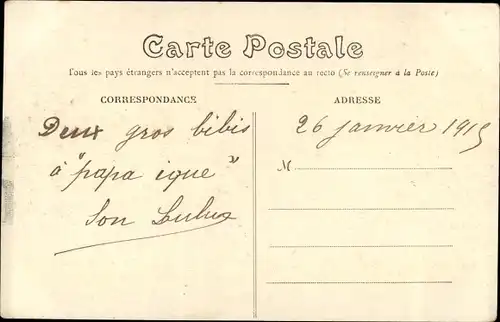 Carte Postale
Tous les pays étrangers n'acceptent pas la correspondance au recto (Se renseigner à la Poste)
CORRESPONDANCE
ADRESSE
Deux gros bibis
26 janvier 1915
à "papa ique"
M
Son Lulux